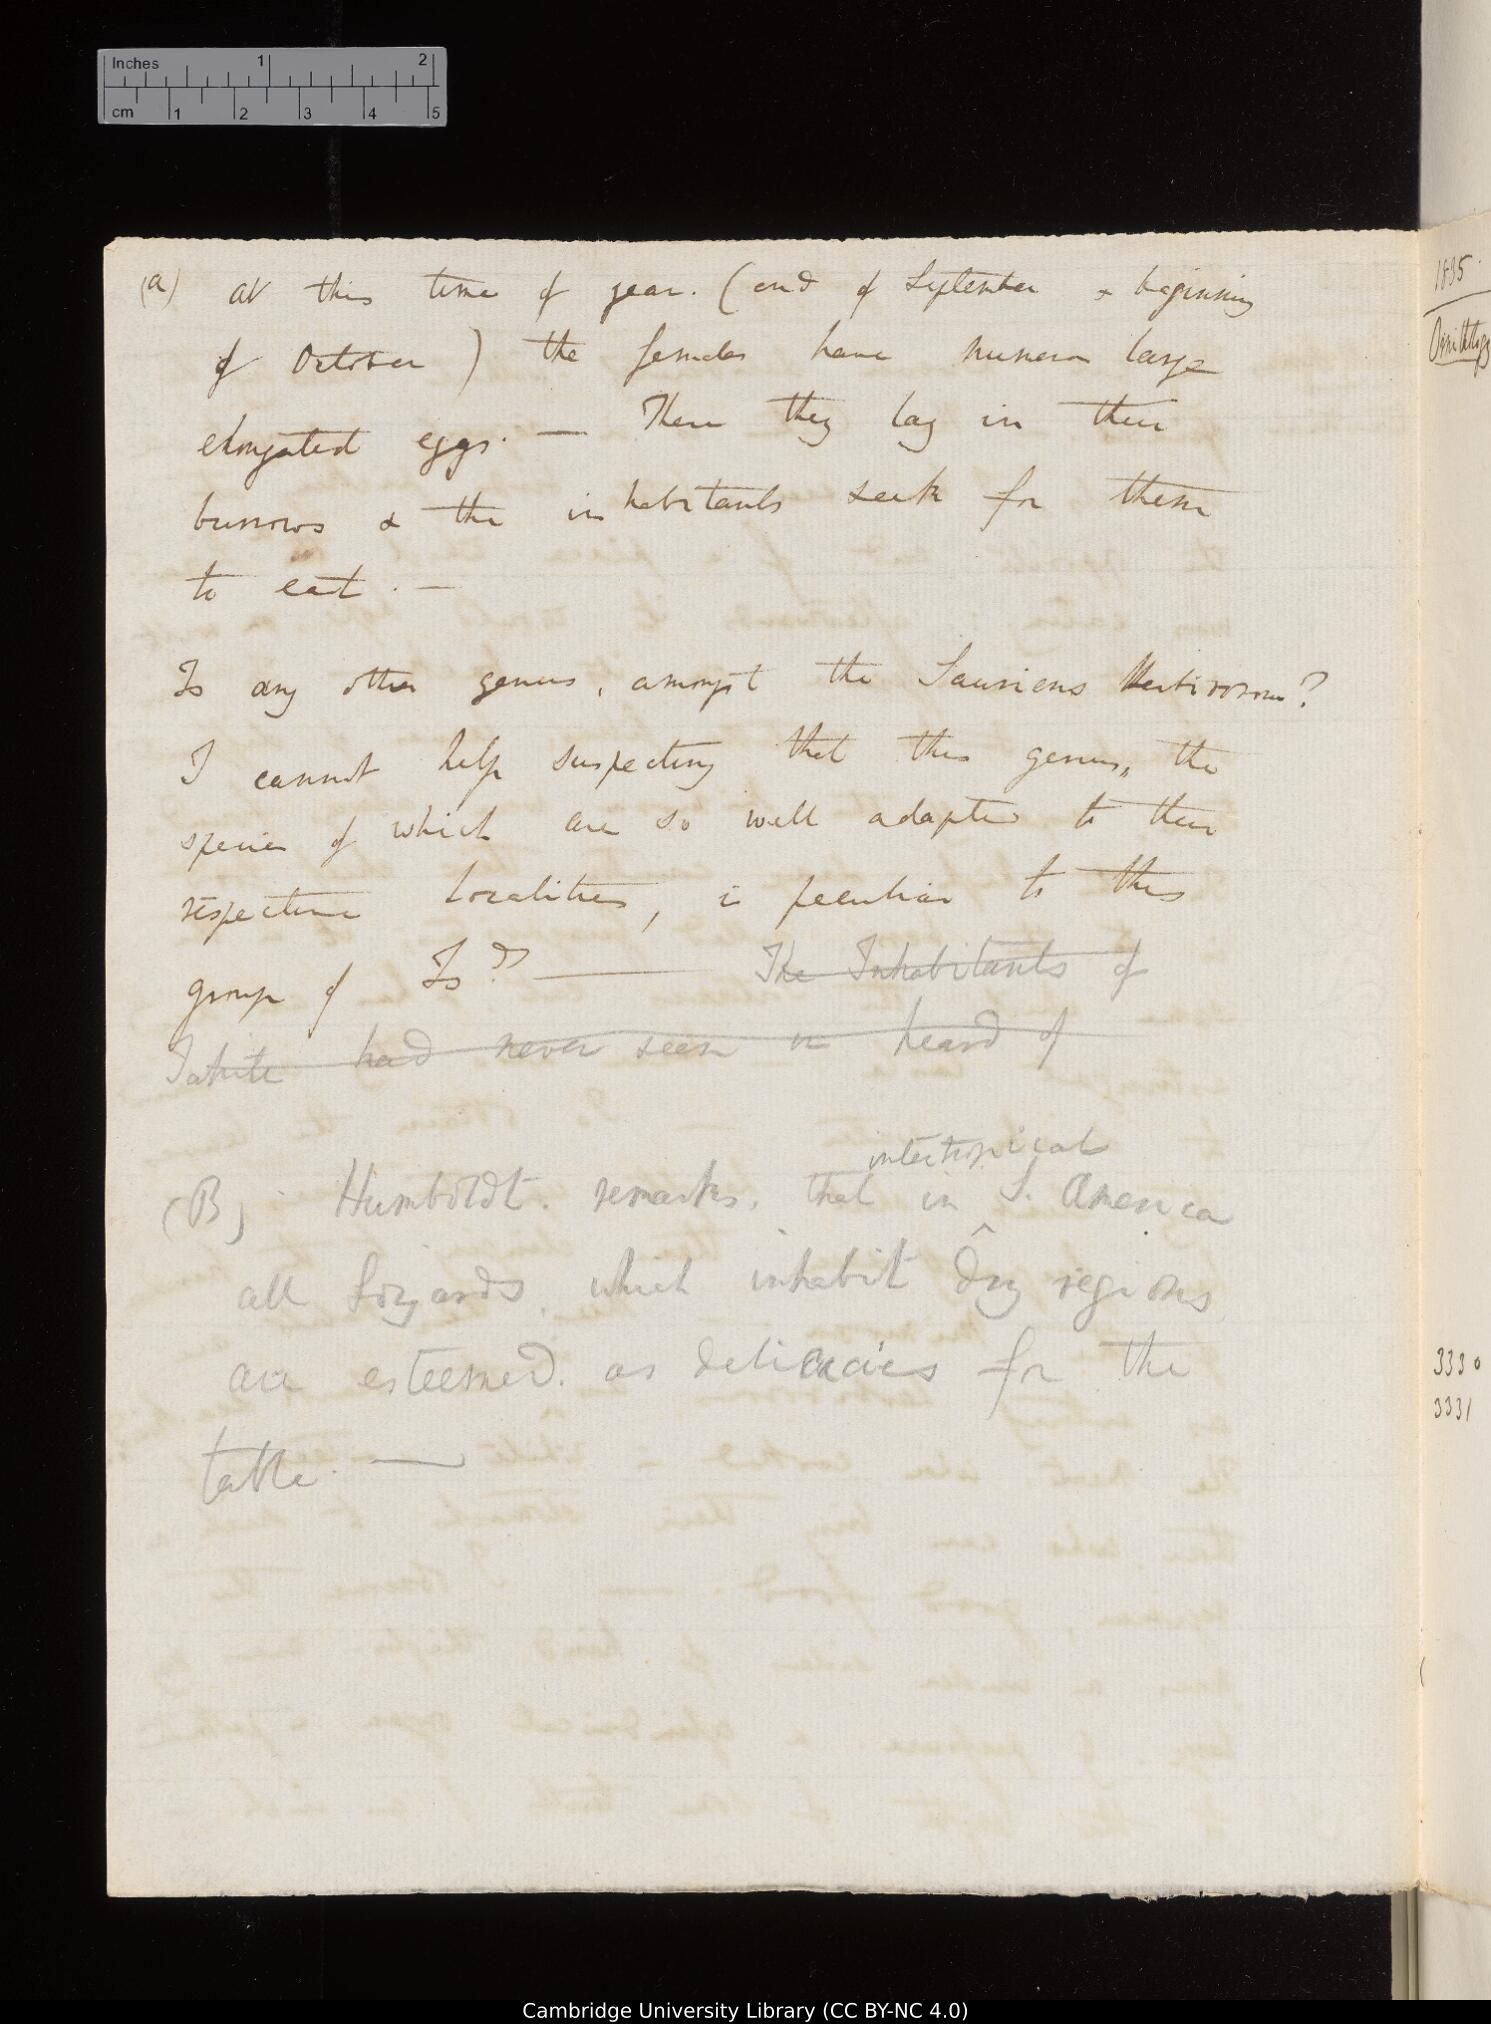 Inches 1 2
cm 1 2 3 4 5
(a) at this time of year. (end of September & beginning
of October) the females have numerous large
elongated eggs. — These they lay in their
burrows & the inhabitants seek for them
to eat. —
Is any other genus, amongst the Sauriens Herbivorous?
I cannot help suspecting that this genus, the
species of which are so well adapted to their
respective localities, is peculiar to this
group of Isds? — The Inhabitants of
Tahiti had never seen or heard of
intertropical
(B) Humboldt. remarks, that in ^ S. America
all Lizards, which inhabit dry regions,
are esteemed. as delicacies for the
table. —
1835
Ornithology
3330
3331
Cambridge University Library (CC BY-NC 4.0)